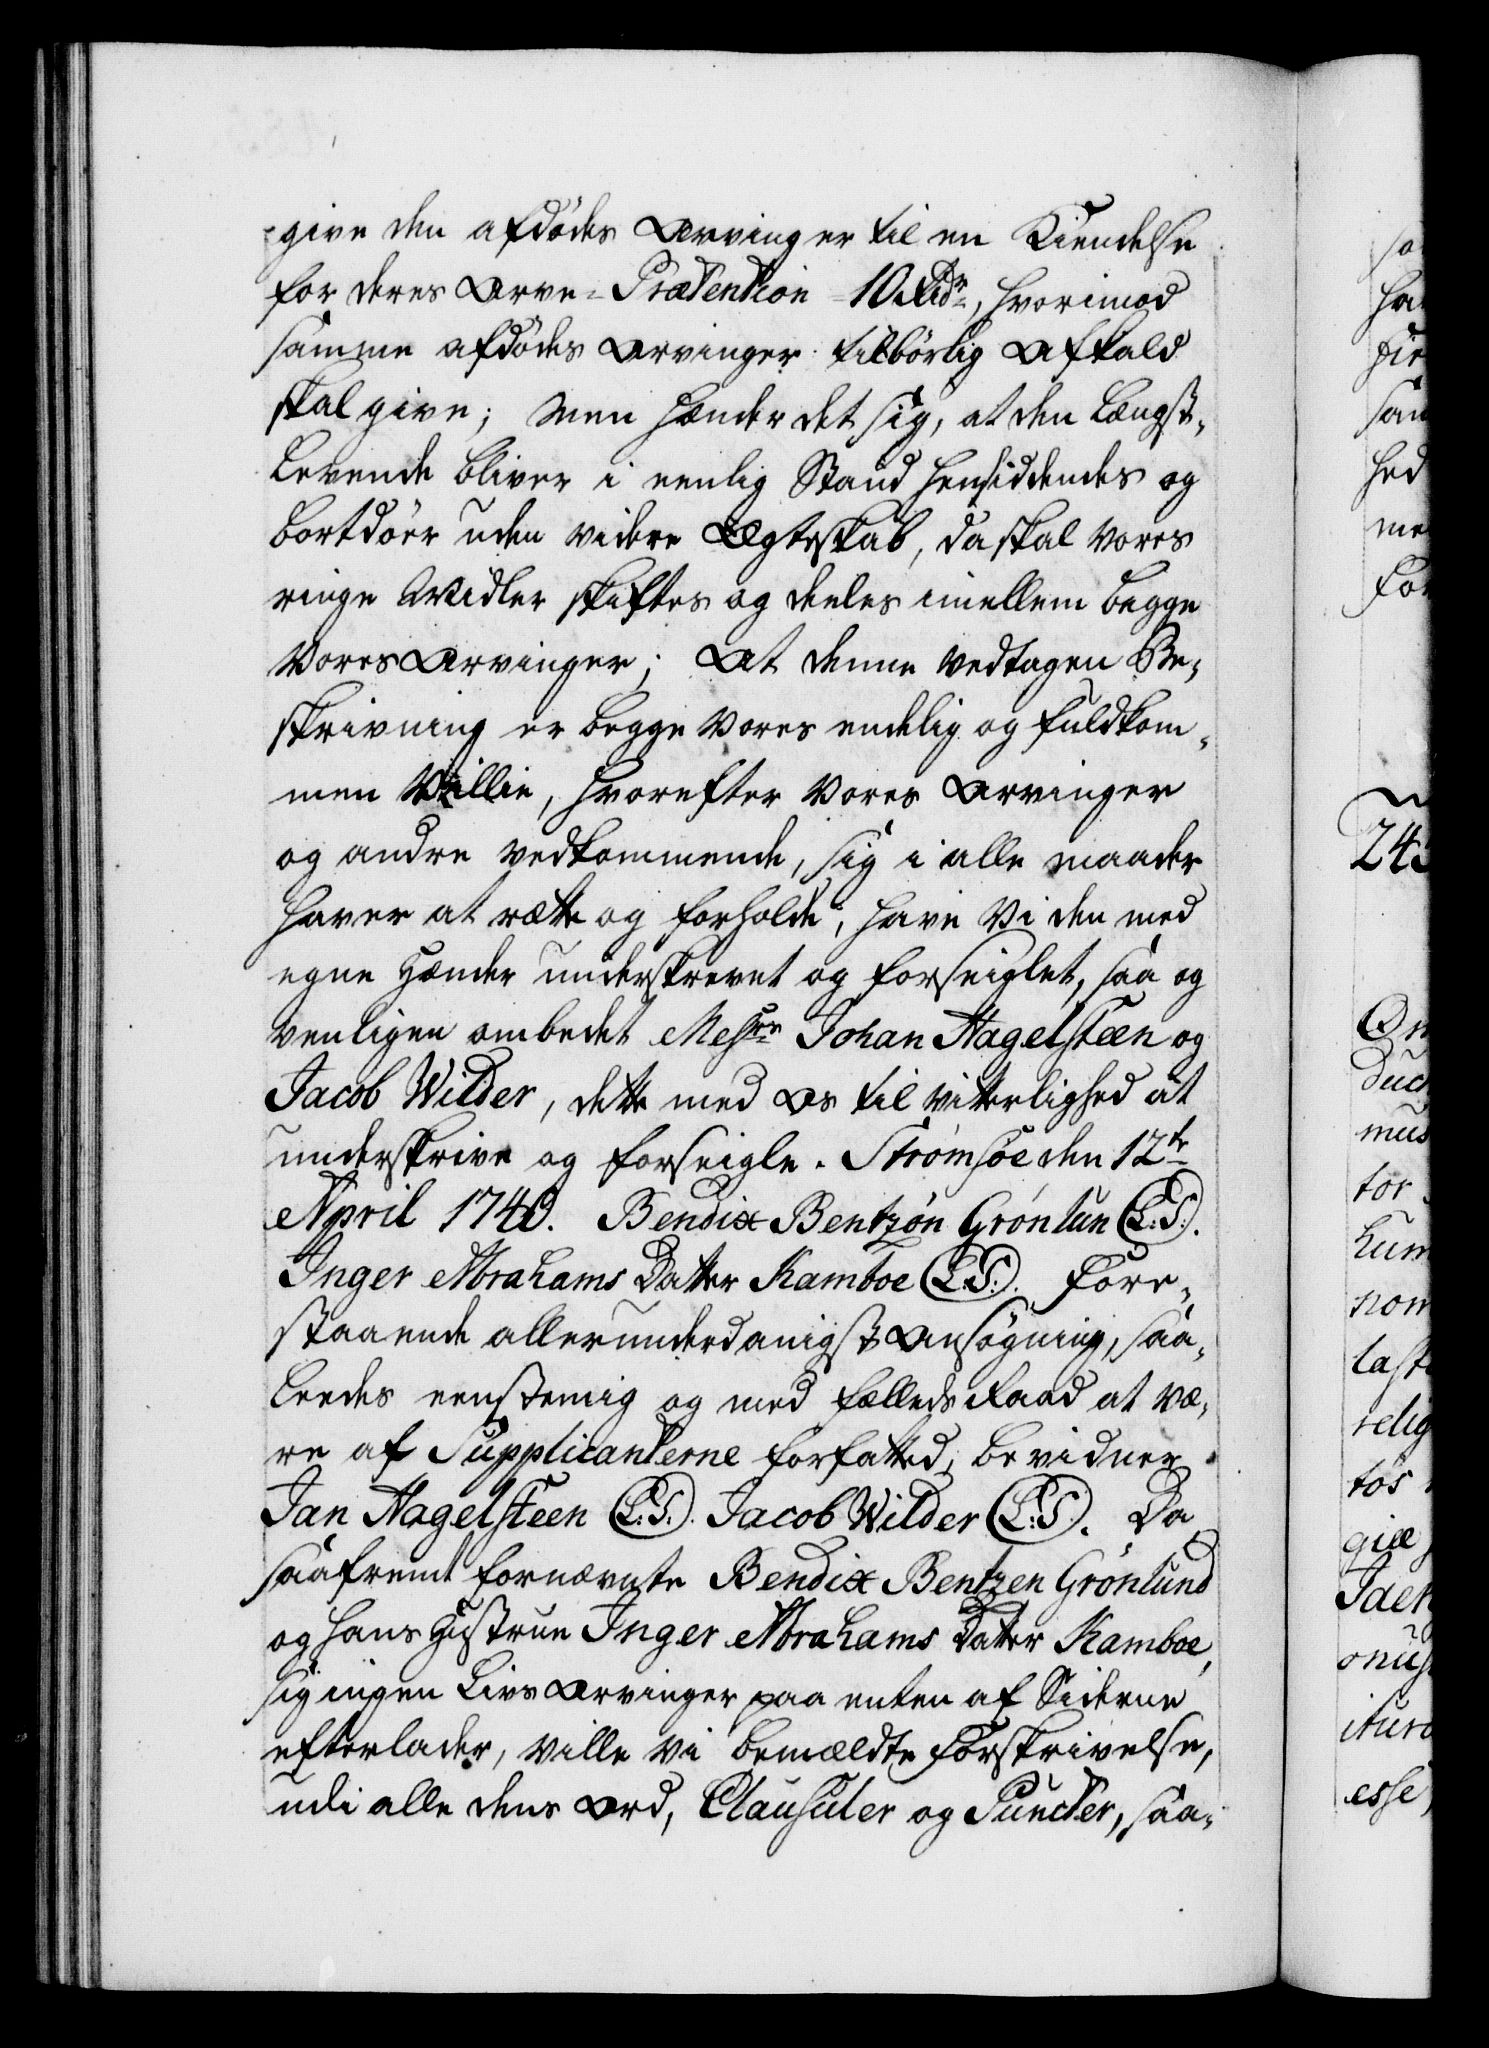 give den afdødes Arvinger til en Kiendelse
for deres Arve-Prætention 10 Rdr, hvorimod
samme afdødes Arvinger tilbørlig Afkald
skal give; Men hænder det sig, at den Længst-
Levende bliver i eenlig Stand hensiddendes og
bortdøer uden videre Ægteskab, da skal vores
ringe Midler skiftes og deeles imellem begge
vores Arvinger; At denne vedtagen Be-
skrivning er begge vores endelig og fuldkom-
men Villie, hvorefter vores Arvinger
og andre vedkommende, sig i alle maader
haver at rette og forholde, have Vi den med
egne Hænder underskrevet og forseiglet, saa og
venligen ombedet Messrs Johan Hagelsteen og
Jacob Wilder, dette med Os til vitterlighed at
underskrive og forseigle. Strømsøe den 12te
April 1740. Bendix Bentzøn Grønlun (L:S:).
Inger Abrahams Datter Kamboe (L:S:). Fore-
staaende allerunderdanigst Ansøgning, saa-
leedes eenstemig og med fælleds Raad at væ-
re af Supplicanterne forfatted, bevidner
Jan Hagelsteen (L:S:). Jacob Wilder (L:S:). Da
saafremt fornævnte Bendix Bentzen Grønlund
og hans Hustrue Inger Abrahams Datter Kamboe,
sig ingen Livs Arvinger paa enten af Siderne
efterlader, ville vi bemældte Forskrivelse,
udi alle dens Ord, Clausuler og Puncter, saa-